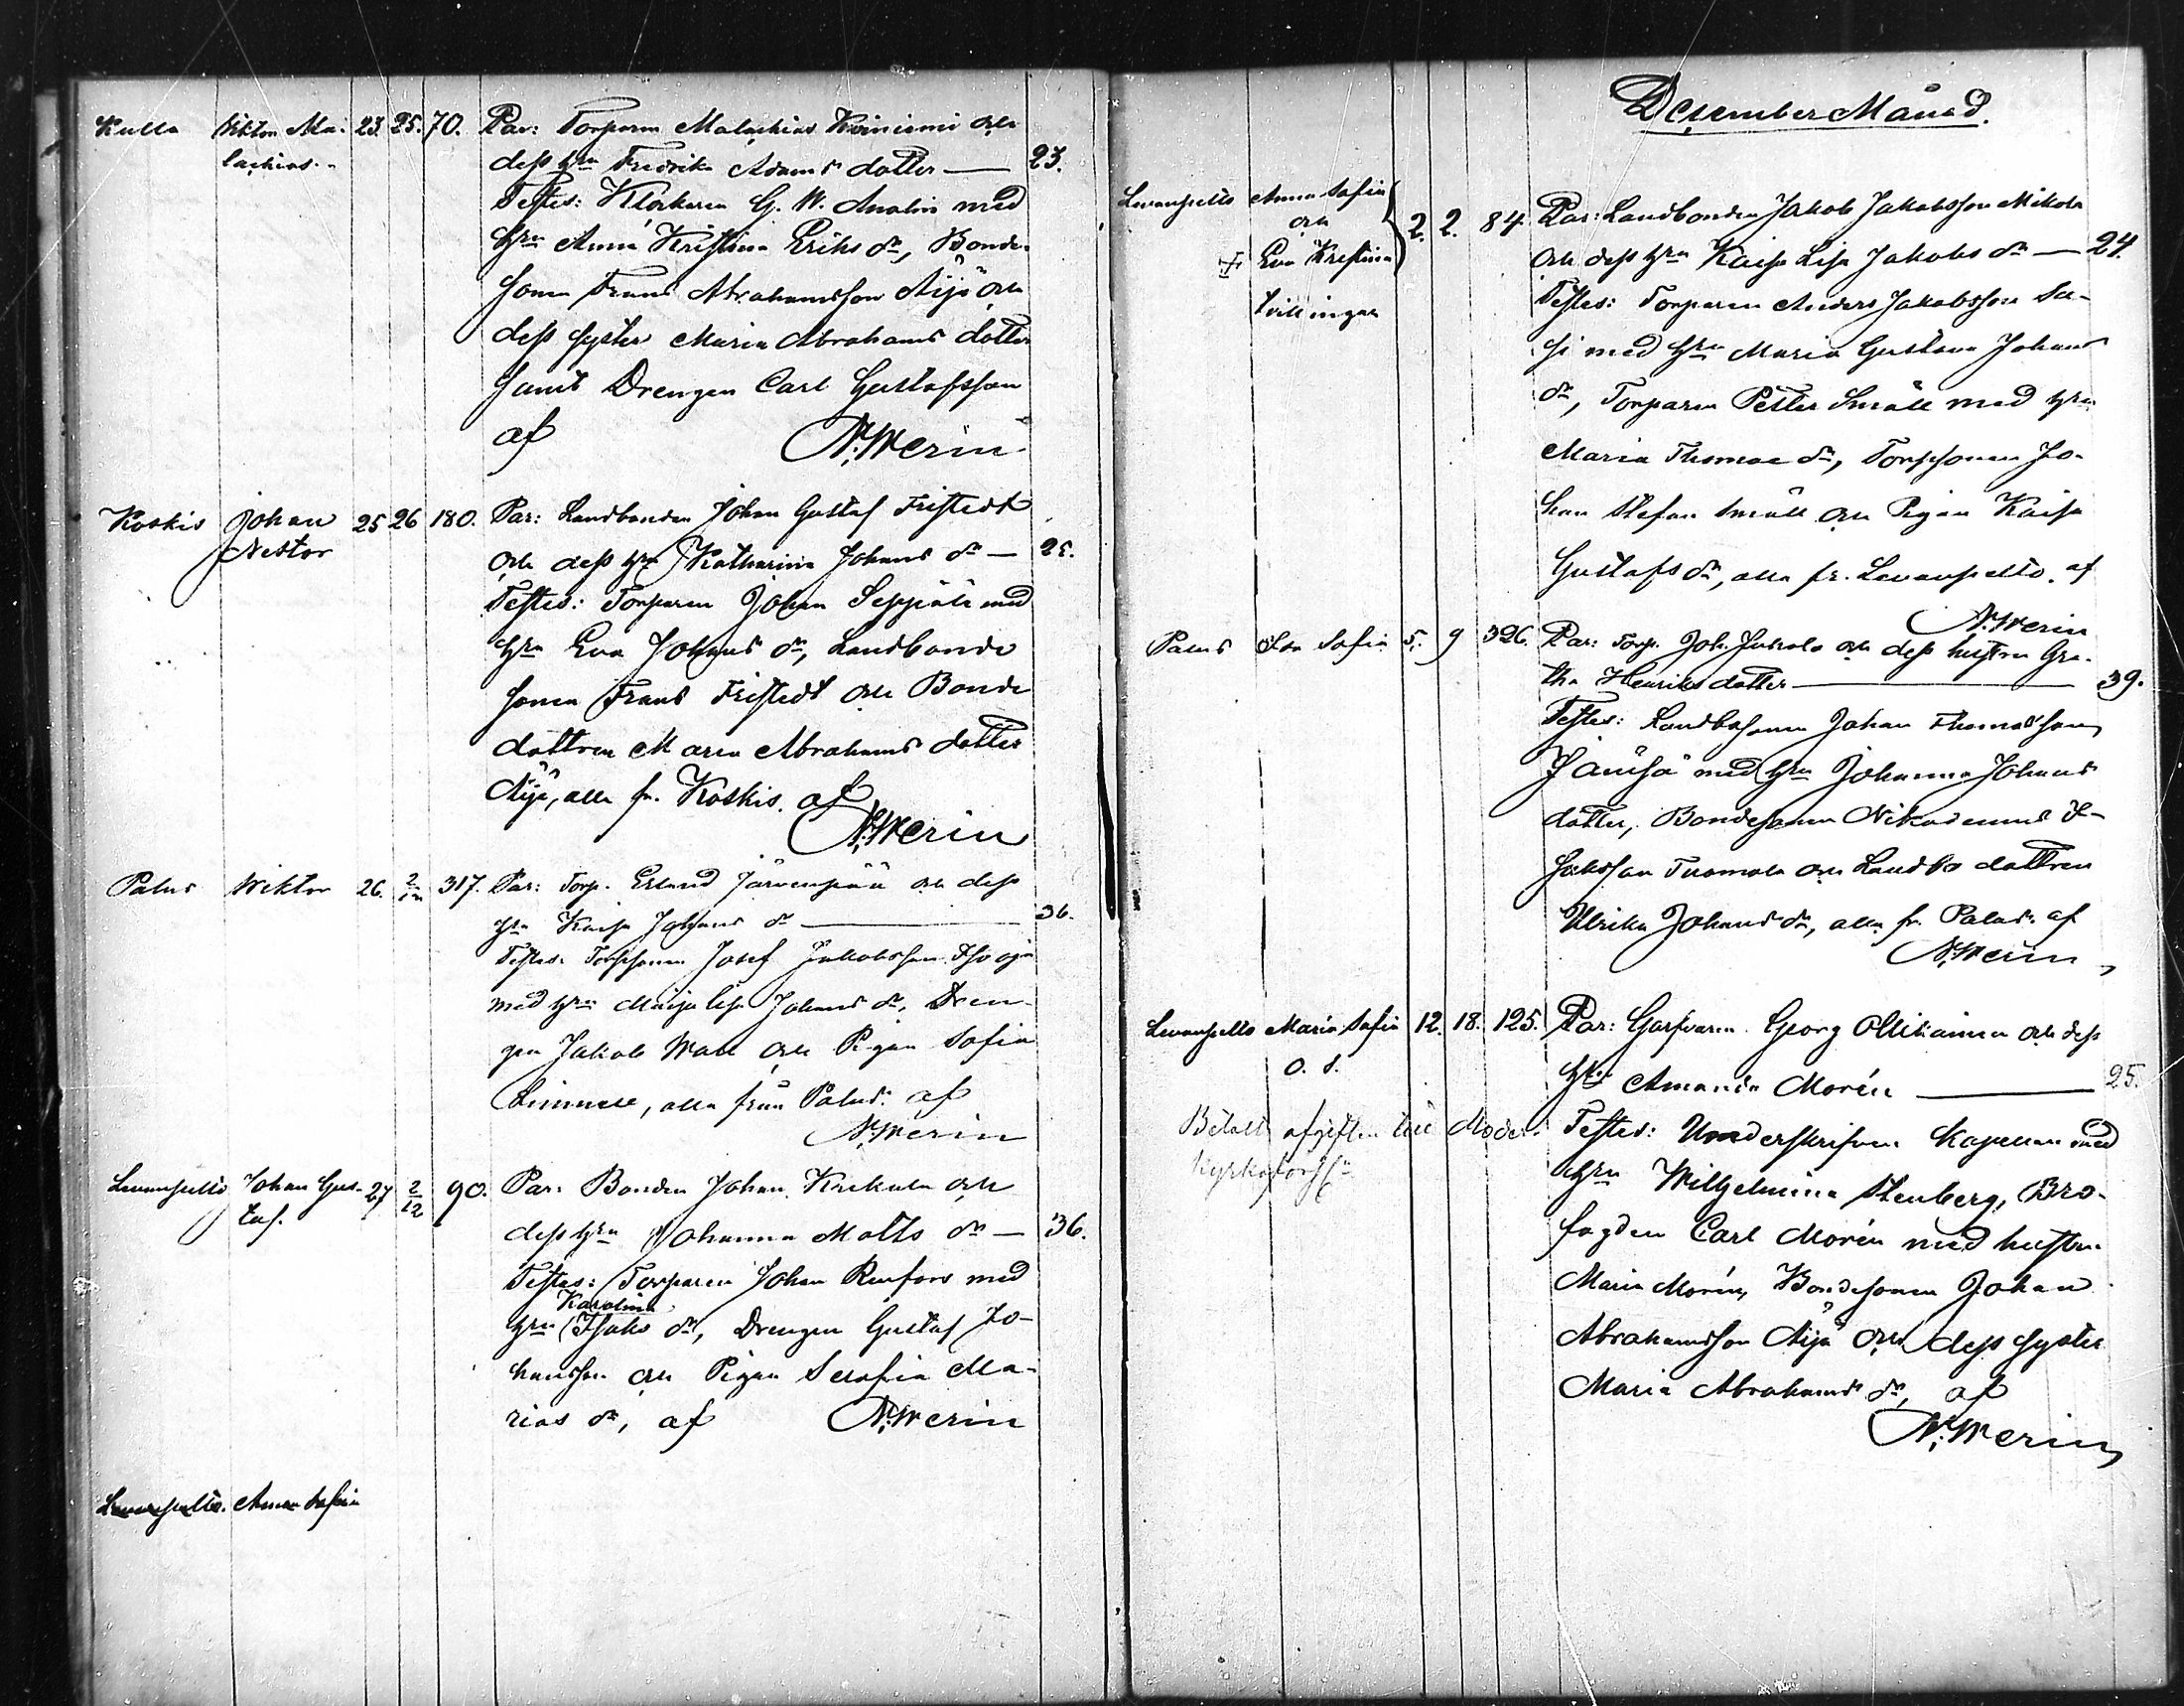 Kulla Viktor Ma- 23. 25. 70. Par: Torparen Malachias Kviniemi och
lachias. dess h:ru Fredrika Adams dotter — 23.
Testes: Klockaren G. W. Analin med
h:ru Anna Kristina Eriks dr, Bonde-
sonen Frans Abrahamsson Äijö och
dess syster Maria Abrahams dotter
samt Drengen Carl Gustafsson
af N. Werin
Koskis Johan 25 26 180. Par: Landbonden Johan Gustaf Fristedt
Nestor och dess h:ru Katharina Johans dr — 25.
Testes: Torparen Johan Seppälä med
h:ru Eva Johans dr, Landbonde
sonen Frans Fristedt och Bonde
dottren Maria Abrahams dotter
Äijö, alla fr. Koskis. af
N. Werin
Palus Wiktor 26. 2/12 317. Par: Torp. Erland Järvenpää och dess
h:ru Kaisa Johans dr — 36.
Testes: Torpsonen Josef Jakobsson
med h:ru Maija Lisa Johans dr, Dren-
gen Jakob Wall och Pigan Sofia
Limnell, alla från Palus. af
N. Werin
Levanpelto Johan Gus- 27 2/12 90. Par: Bonden Johan Krekula och
taf. dess h:ru Johanna Matts dr — 36.
Testes: Torparen Johan Renfors med
Karolina
h:ru Isaks dr, Drengen Gustaf Jo-
hansson och Pigan Serafia Ma-
rias dr, af N. Werin
Levanpelto. Anna Sofia
December Månad.
Levanpelto Anna Sofia 2. 2. 84. Par: Landbonden Jakob Jakobsson Mikola
och
+ Eva Kristina och dess h:ru Kaisa Lisa Jakobs dr — 24.
tvillingar Testes: Torparen Anders Jakobsson Sa-
si med h:ru Maria Gustava Johans
dr, Torparen Petter Småll med h:ru
Maria Thomae dr, Torpsonen Jo-
han Stefan Småll och Pigan Kaisa
Gustafs dr, alla fr. Levanpelto. af
N. Werin
Palus Ida Sofia 5. 9 326. Par: Torp. Joh. Juhola och dess hustru Gre-
tha Henriks dotter — 39.
Testes: Landbosonen Johan Thomasson
Jänisä med h:ru Johanna Johans
dotter, Bondesonen Nikodemus I-
saksson Tuomola och Landbo dottren
Ulrika Johans dr, alla fr. Palus. af
N. Werin
Levanpelto Maria Sofia 12. 18. 125. Par: Garfvaren Georg Ollikainen och dess
o. d. h:ru Amanda Morén — 25.
Betalt afgiften till Moder- Testes: Underskrifven Kapellan med
kyrko h:ru Wilhelmina Stenberg, Bro-
fogden Carl Morén med hustru
Maria Morén, Bondesonen Johan
Abrahamsson Äijö och dess syster
Maria Abrahams dr, af
N. Werin